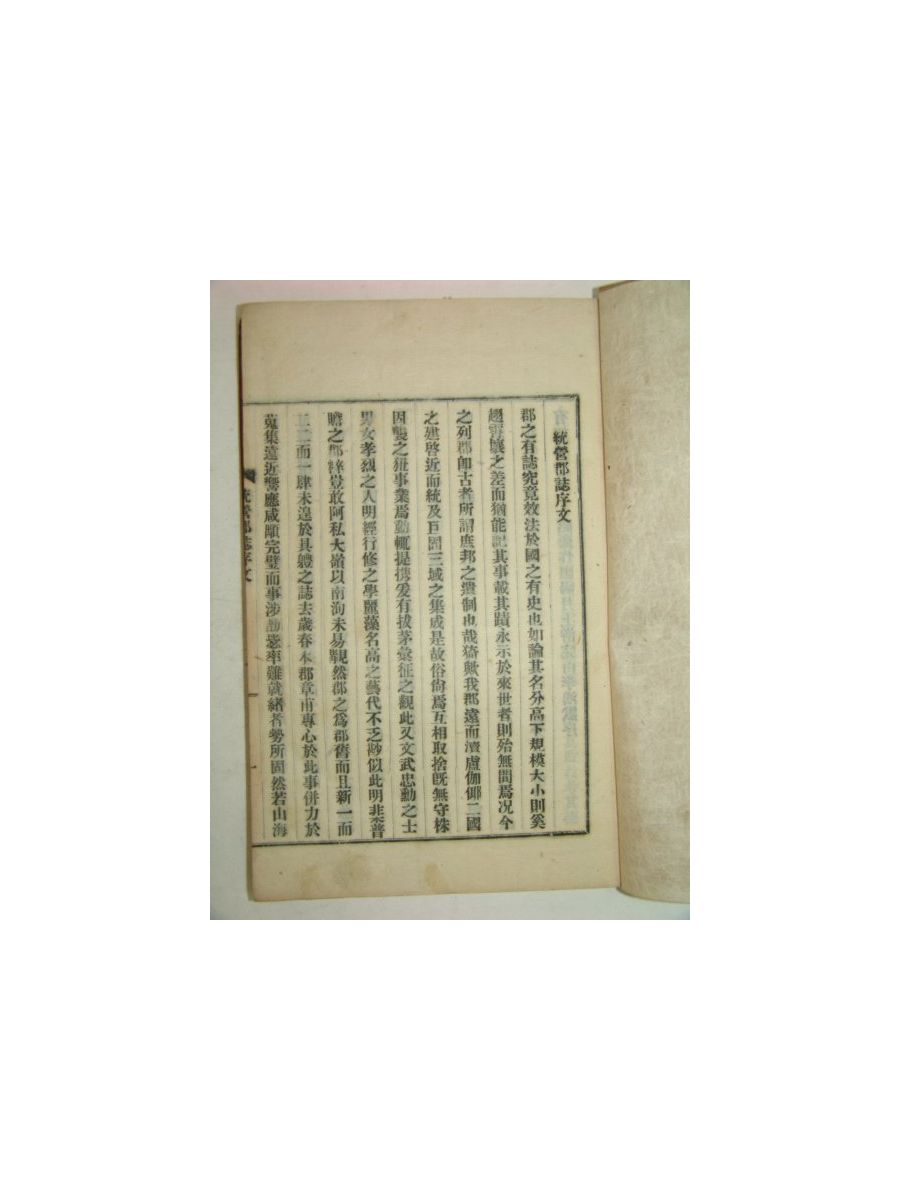 統營郡誌序文
郡之有誌究竟效法於國之有史也如論其名分高下規模大小則奚
趐霄壤之差而猶能記其事載其蹟永示於來世者則殆無間焉况今
之列郡卽古者所謂庶邦之遺制也哉猗歟我郡遠而濟盧伽倻二國
之建啓近而統及巨固三域之集成是故俗尙焉互相取捨旣無守株
因襲之事業焉動輒提携爰有拔茅彙征之觀此又文武忠勳之士
男女孝烈之人明經行修之學麗藻名高之藝代不乏尠似此明非普
瞻之鄙辭豈敢阿私大嶺以南洵未易覩然郡之爲郡舊而且新一而
二二而一肆未遑於具體之誌去歲春本郡章甫專心於此事併力於
蒐集遠近響應咸願完璧而事涉勘毖率難就緖者勢所固然若山海
統營郡誌序文
一